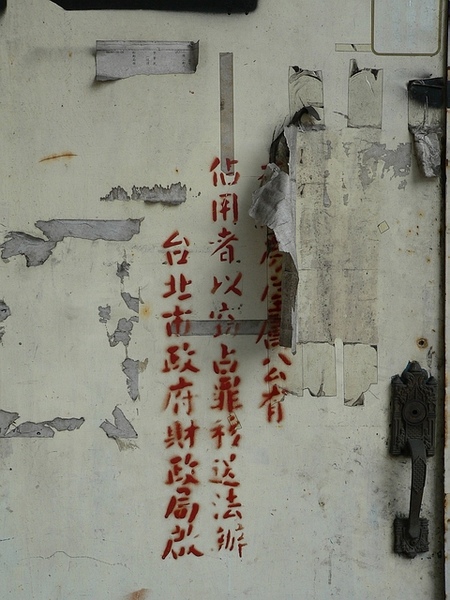 房屋屬公有
佔用者以竊占罪移送法辦
台北市政府財政局啟